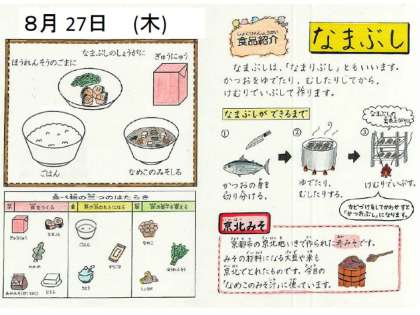 8月27日 (木)
なまぶしのしょうがに
ほうれんそうのごまに
ぎゅうにゅう
ごはん
なめこのみそしる
食品紹介
なまぶし
なまぶしは、「なまりぶし」ともいいます。
かつおをゆでたり、むしたりしてから、
けむりでいぶして作ります。
なまぶしができるまで
①
②
③
かつおの身を
切り分ける。
ゆでたり、
むしたりする。
けむりでいぶす。
かびづけをしてかわかすと
「かつおぶし」になります。
京北みそ
京都市の京北地いきで作られた赤みそです。
みそのざいりょうになる大豆や米も
京北でとれたものです。今日の
「なめこのみそ汁」に使っています。